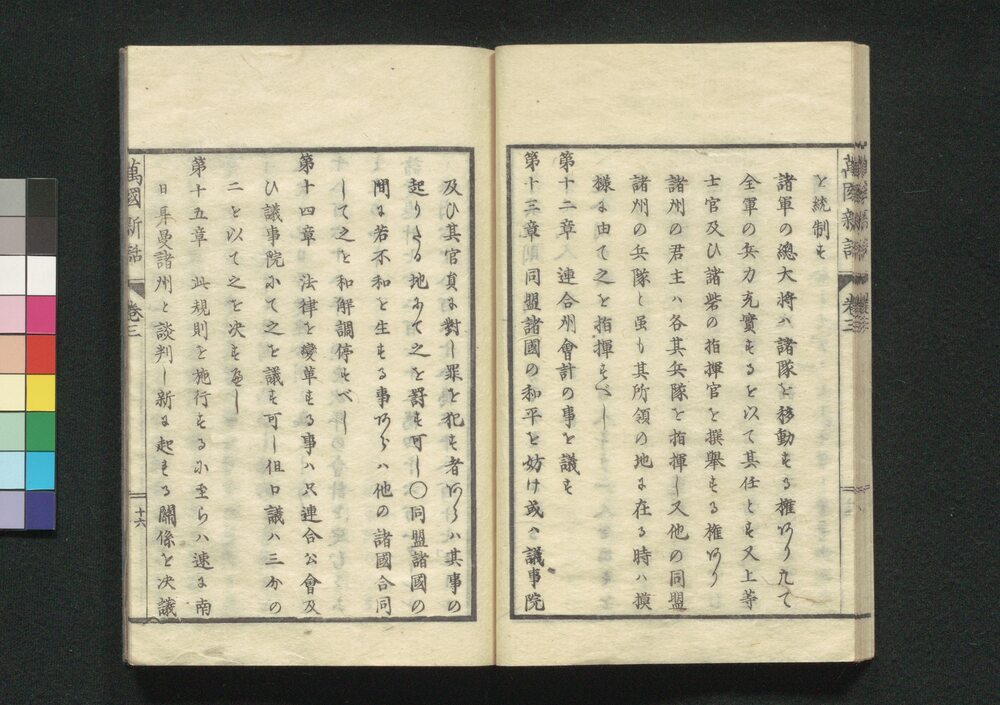 を統制す
諸軍の總大将ハ諸隊を移動する權あり九て
全軍の兵力充實するを以て其任とす又上等
士官及ひ諸砦の指揮官を撰舉する權あり
諸州の君主ハ各其兵隊を指揮し又他の同盟
諸州の兵隊と虽も其所領の地に在る時ハ摸
様に由て之を指揮すべし
第十二章 連合州會計の事を議す
第十三章 同盟諸國の和平を妨け或ハ議事院
及ひ其官員に對し罪を犯す者あらハ其事の
起りたる地おて之を罰す可し〇同盟諸國の
間に若不和を生する事あらハ他の諸國合同
して之を和解調停すべし
第十四章 法律を變革する事ハ只連合公會及
ひ議事院にて之を議す可し但口議ハ三分の
二を以て之を决すべし
第十五章 此規則を施行するに至らハ速に南
日耳曼諸州と談判し新に起する關係を决議
萬國新話 卷三 十六